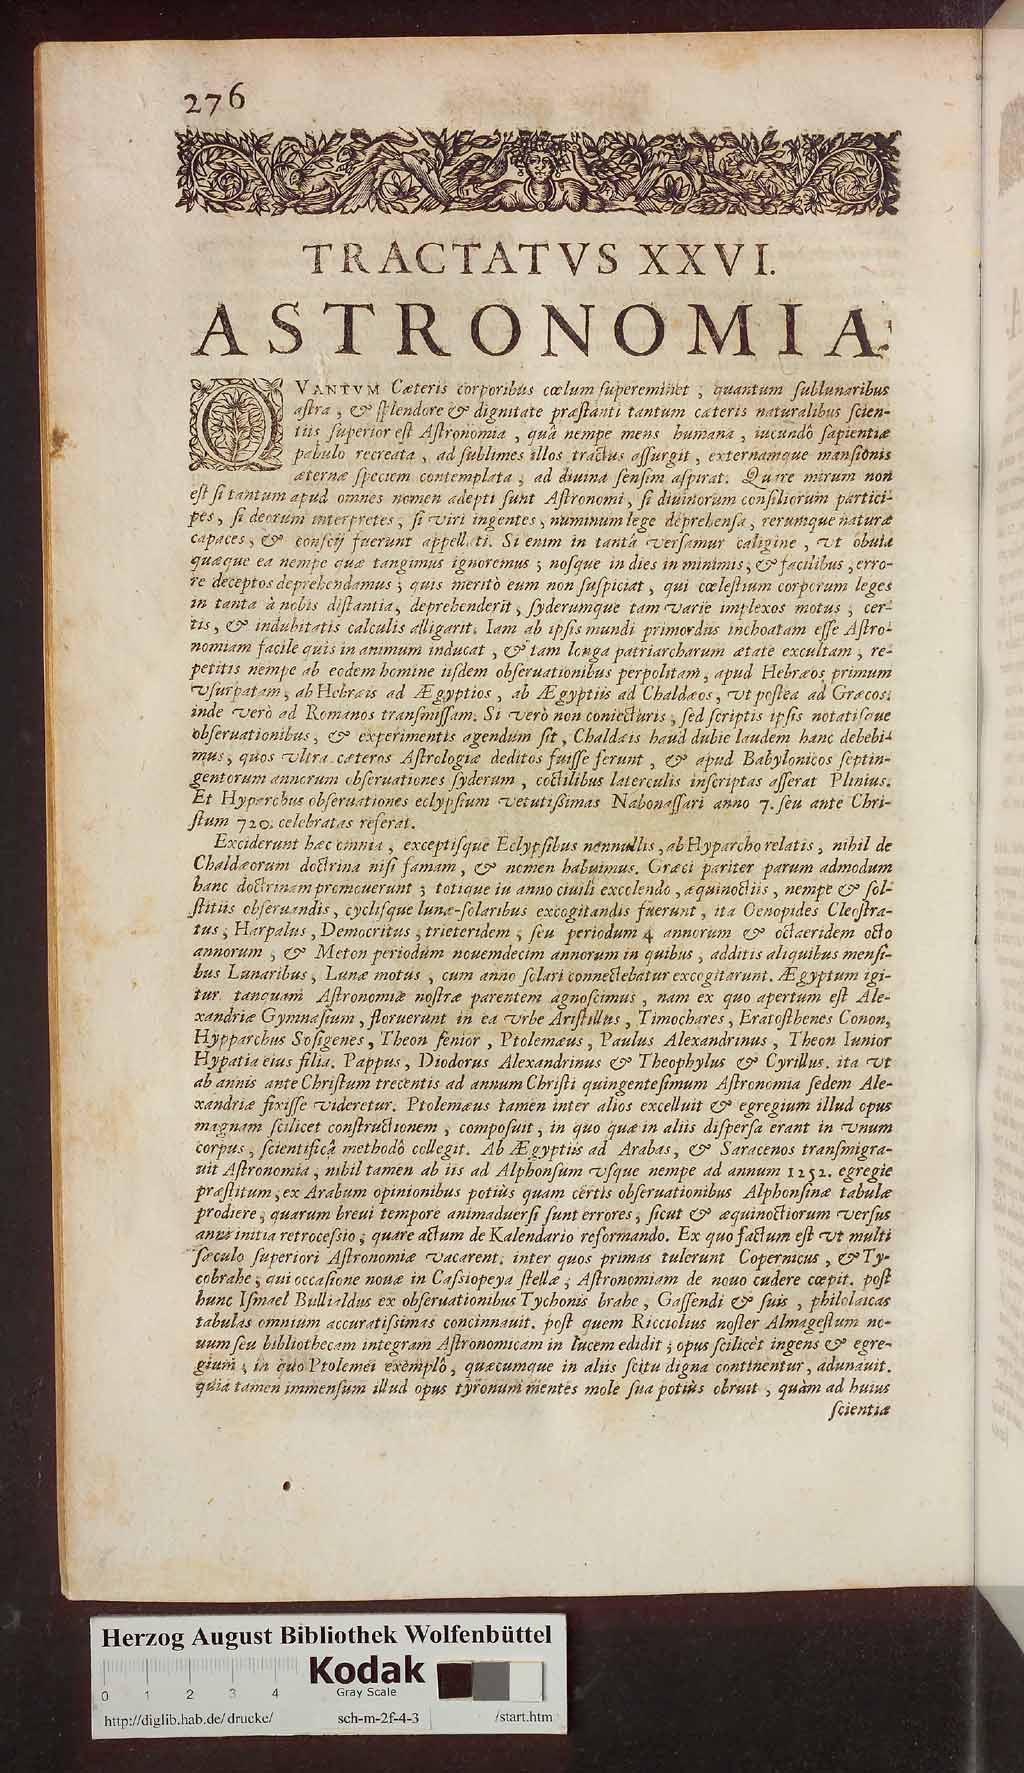 276
TRACTATVS XXVI.
ASTRONOMIA.
QVANTVM Cæteris corporibus cœlum supereminet, quantum sublunaribus
astra, & splendore & dignitate præstanti tantum cæteris naturalibus scien-
tiis superior est Astronomia, quâ nempe mens humana, iucundô sapientiæ
pabulo recreata, ad sublimes illos tractus assurgit, externamque mansionis
æternæ speciem contemplata, ad diuina sensim aspirat. Quare mirum non
est si tantum apud omnes nomen adepti sunt Astronomi, si diuinorum consiliorum partici-
pes, si deorum interpretes, si viri ingentes, numinum lege deprehensa, rerumque naturæ
capaces, & conscij fuerunt appellati. Si enim in tantâ versamur caligine, vt obuia
quæque ea nempe quæ tangimus ignoremus; nosque in dies in minimis, & facilibus, erro-
re deceptos deprehendamus; quis meritò eum non suspiciat, qui cœlestium corporum leges
in tanta à nobis distantia, deprehenderit, syderumque tam varie implexos motus, cer-
tis, & indubitatis calculis alligarit. Iam ab ipsis mundi primordiis inchoatam esse Astro-
nomiam facile quis in animum inducat, & tam longa patriarcharum ætate excultam, re-
petitis nempe ab eodem homine iisdem obseruationibus perpolitam, apud Hebræos primum
vsurpatam, ab Hebræis ad Ægyptios, ab Ægyptiis ad Chaldæos, vt postea ad Græcos.
inde verò ad Romanos transmissam. Si verò non coniecturis, sed scriptis ipsis notatisque
obseruationibus, & experimentis agendum sit, Chaldæis haud dubie laudem hanc debebi-
mus, quos vltra cæteros Astrologiæ deditos fuisse ferunt, & apud Babylonicos septin-
gentorum annorum obseruationes syderum, coctilibus laterculis inscriptas asserat Plinius.
Et Hyparchus obseruationes eclypsium vetutissimas Nabonassari anno 7. seu ante Chri-
stum 720. celebratas referat.
Exciderunt hæc omnia, exceptisque Eclypsibus nonnullis, ab Hyparcho relatis, nihil de
Chaldæorum doctrina nisi famam, & nomen habuimus. Græci pariter parum admodum
hanc doctrinam promouerunt; totique in anno ciuili excolendo, æquinoctiis, nempe & sol-
stitiis obseruandis, cyclisque lunæ-solaribus excogitandis fuerunt, ita Oenopides Cleostra-
tus, Harpalus, Democritus, trieteridem, seu periodum 4 annorum & octaeridem octo
annorum, & Meton periodum nouemdecim annorum in quibus, additis aliquibus mensi-
bus Lunaribus, Lunæ motus, cum anno solari connectebatur excogitarunt. Ægyptum igi-
tur tanquam Astronomiæ nostræ parentem agnoscimus, nam ex quo apertum est Ale-
xandriæ Gymnasium, floruerunt in ea vrbe Aristillus, Timochares, Eratosthenes Conon,
Hypparchus Sosigenes, Theon senior, Ptolemæus, Paulus Alexandrinus, Theon Iunior
Hypatia eius filia. Pappus, Diodorus Alexandrinus & Theophylus & Cyrillus. ita vt
ab annis ante Christum trecentis ad annum Christi quingentesimum Astronomia sedem Ale-
xandriæ fixisse videretur. Ptolemæus tamen inter alios excelluit & egregium illud opus
magnam scilicet constructionem, composuit, in quo quæ in aliis dispersa erant in vnum
corpus, scientificâ methodô collegit. Ab Ægyptiis ad Arabas, & Saracenos transmigra-
uit Astronomia, nihil tamen ab iis ad Alphonsum vsque nempe ad annum 1252. egregie
præstitum, ex Arabum opinionibus potiùs quam certis obseruationibus Alphonsinæ tabulæ
prodiere, quarum breui tempore animaduersi sunt errores, sicut & æquinoctiorum versus
anni initia retrocessio, quare actum de Kalendario reformando. Ex quo factum est vt multi
sæculo superiori Astronomiæ vacarent. inter quos primas tulerunt Copernicus, & Ty-
cobrahe, qui occasione nouæ in Cassiopeya stellæ, Astronomiam de nouo cudere cœpit. post
hunc Ismael Bullialdus ex obseruationibus Tychonis brahe, Gassendi & suis, philolaicas
tabulas omnium accuratissimas concinnauit. post quem Ricciolius noster Almagestum no-
uum seu bibliothecam integram Astronomicam in lucem edidit; opus scilicet ingens & egre-
gium, in quo Ptolemei exemplô, quæcumque in aliis scitu digna continentur, adunauit.
quia tamen immensum illud opus tyronum mentes mole sua potiùs obruit, quàm ad huius
scientiæ
Herzog August Bibliothek Wolfenbüttel
Kodak
Gray Scale
0 1 2 3 4
http://diglib.hab.de/drucke/ sch-m-2f-4-3 /start.htm